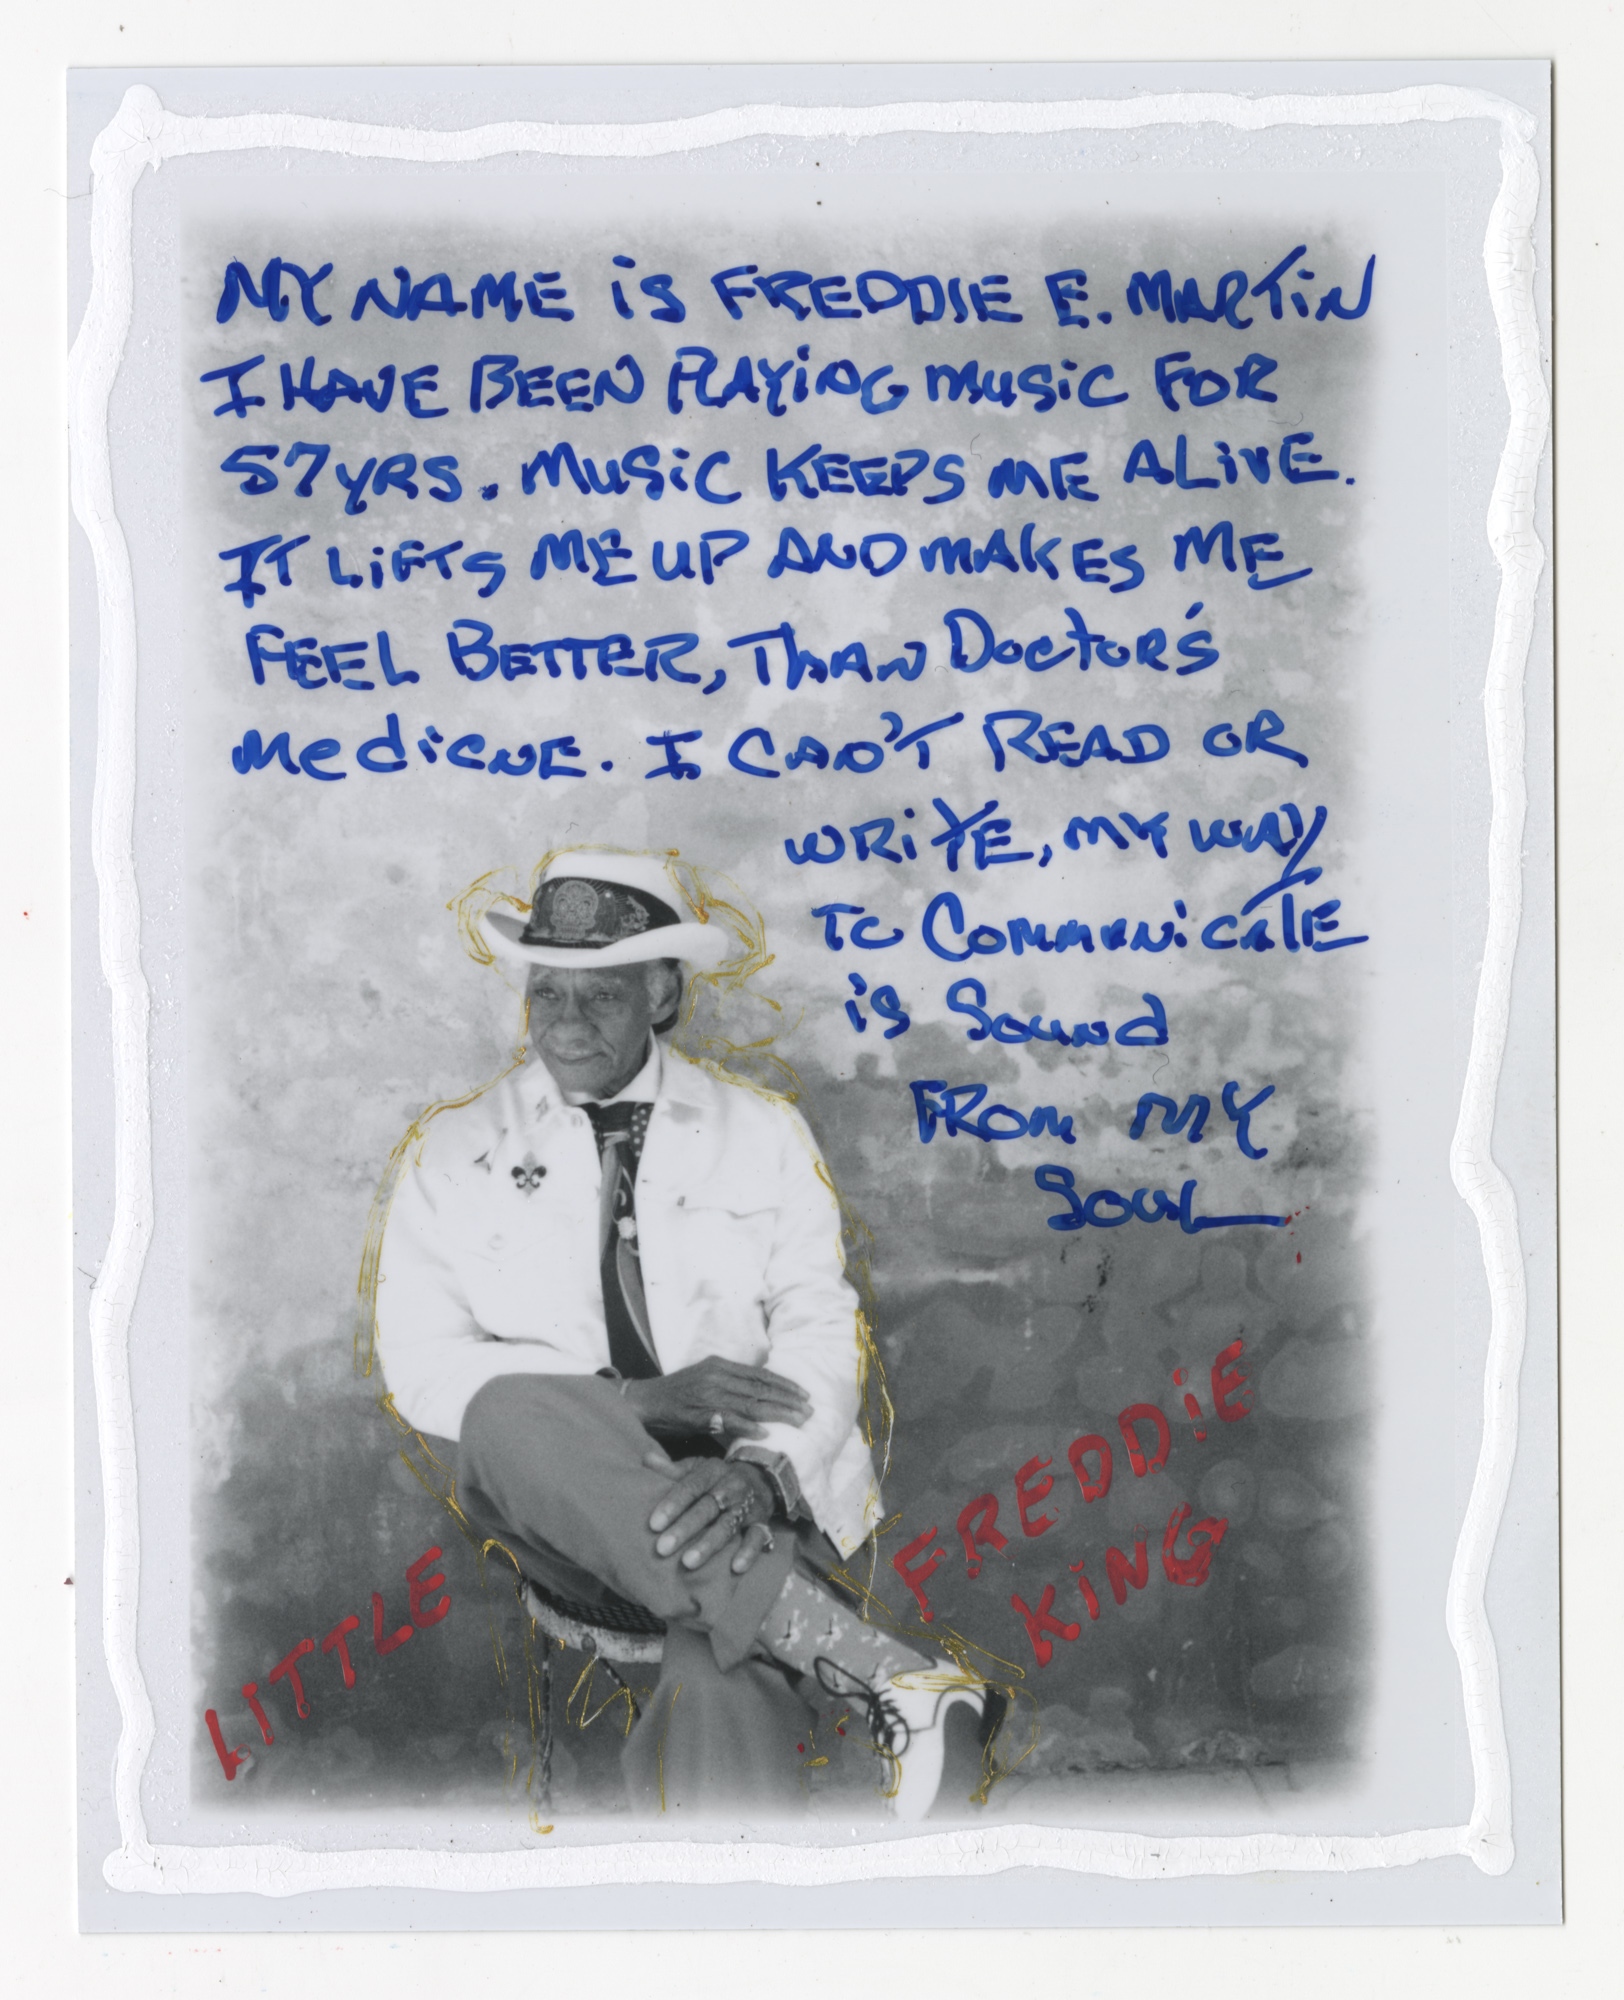 MY NAME iS FREDDIE E. MARTiN
I HAVE BEEN PLAYiNG MUSiC FOR
57 YRS. MUSiC KEEPS ME ALiVE.
IT LiFTS ME UP AND MAKES ME
FEEL BETTER, THAN DOCTOR'S
MediCNE. I CAN'T READ OR
WRiTE, MY WAY
TO COMMUNiCATE
iS SOUND
FROM MY
SOUL
LITTLE FREDDiE
KiNG